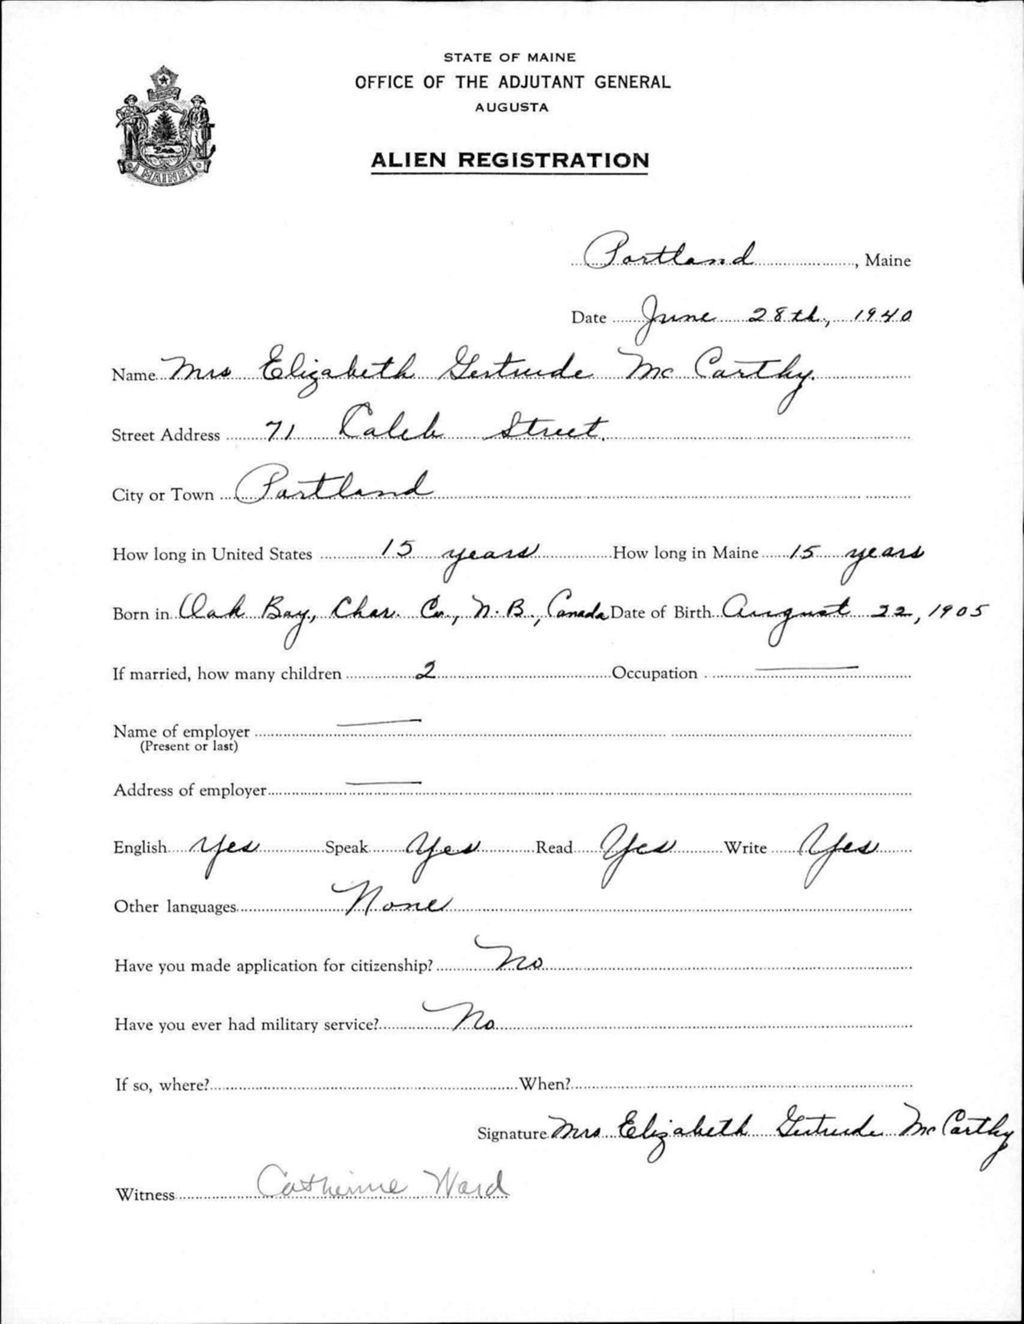 STATE OF MAINE
OFFICE OF THE ADJUTANT GENERAL
AUGUSTA
ALIEN REGISTRATION
MAINE
Portland, Maine
Date June 28th, 1940
Name Mrs Elizabeth Gertrude McCarthy.
Street Address 71 Caleb Street.
City or Town Portland
How long in United States 15 years How long in Maine 15 years
Born in Oak Bay, Char. Co., N.B., Canada Date of Birth August 22, 1905
If married, how many children 2 Occupation —
Name of employer —
(Present or last)
Address of employer —
English Yes Speak Yes Read Yes Write Yes
Other languages None
Have you made application for citizenship? No
Have you ever had military service? No
If so, where? When?
Signature Mrs Elizabeth Gertrude McCarthy
Witness Catherine Ward